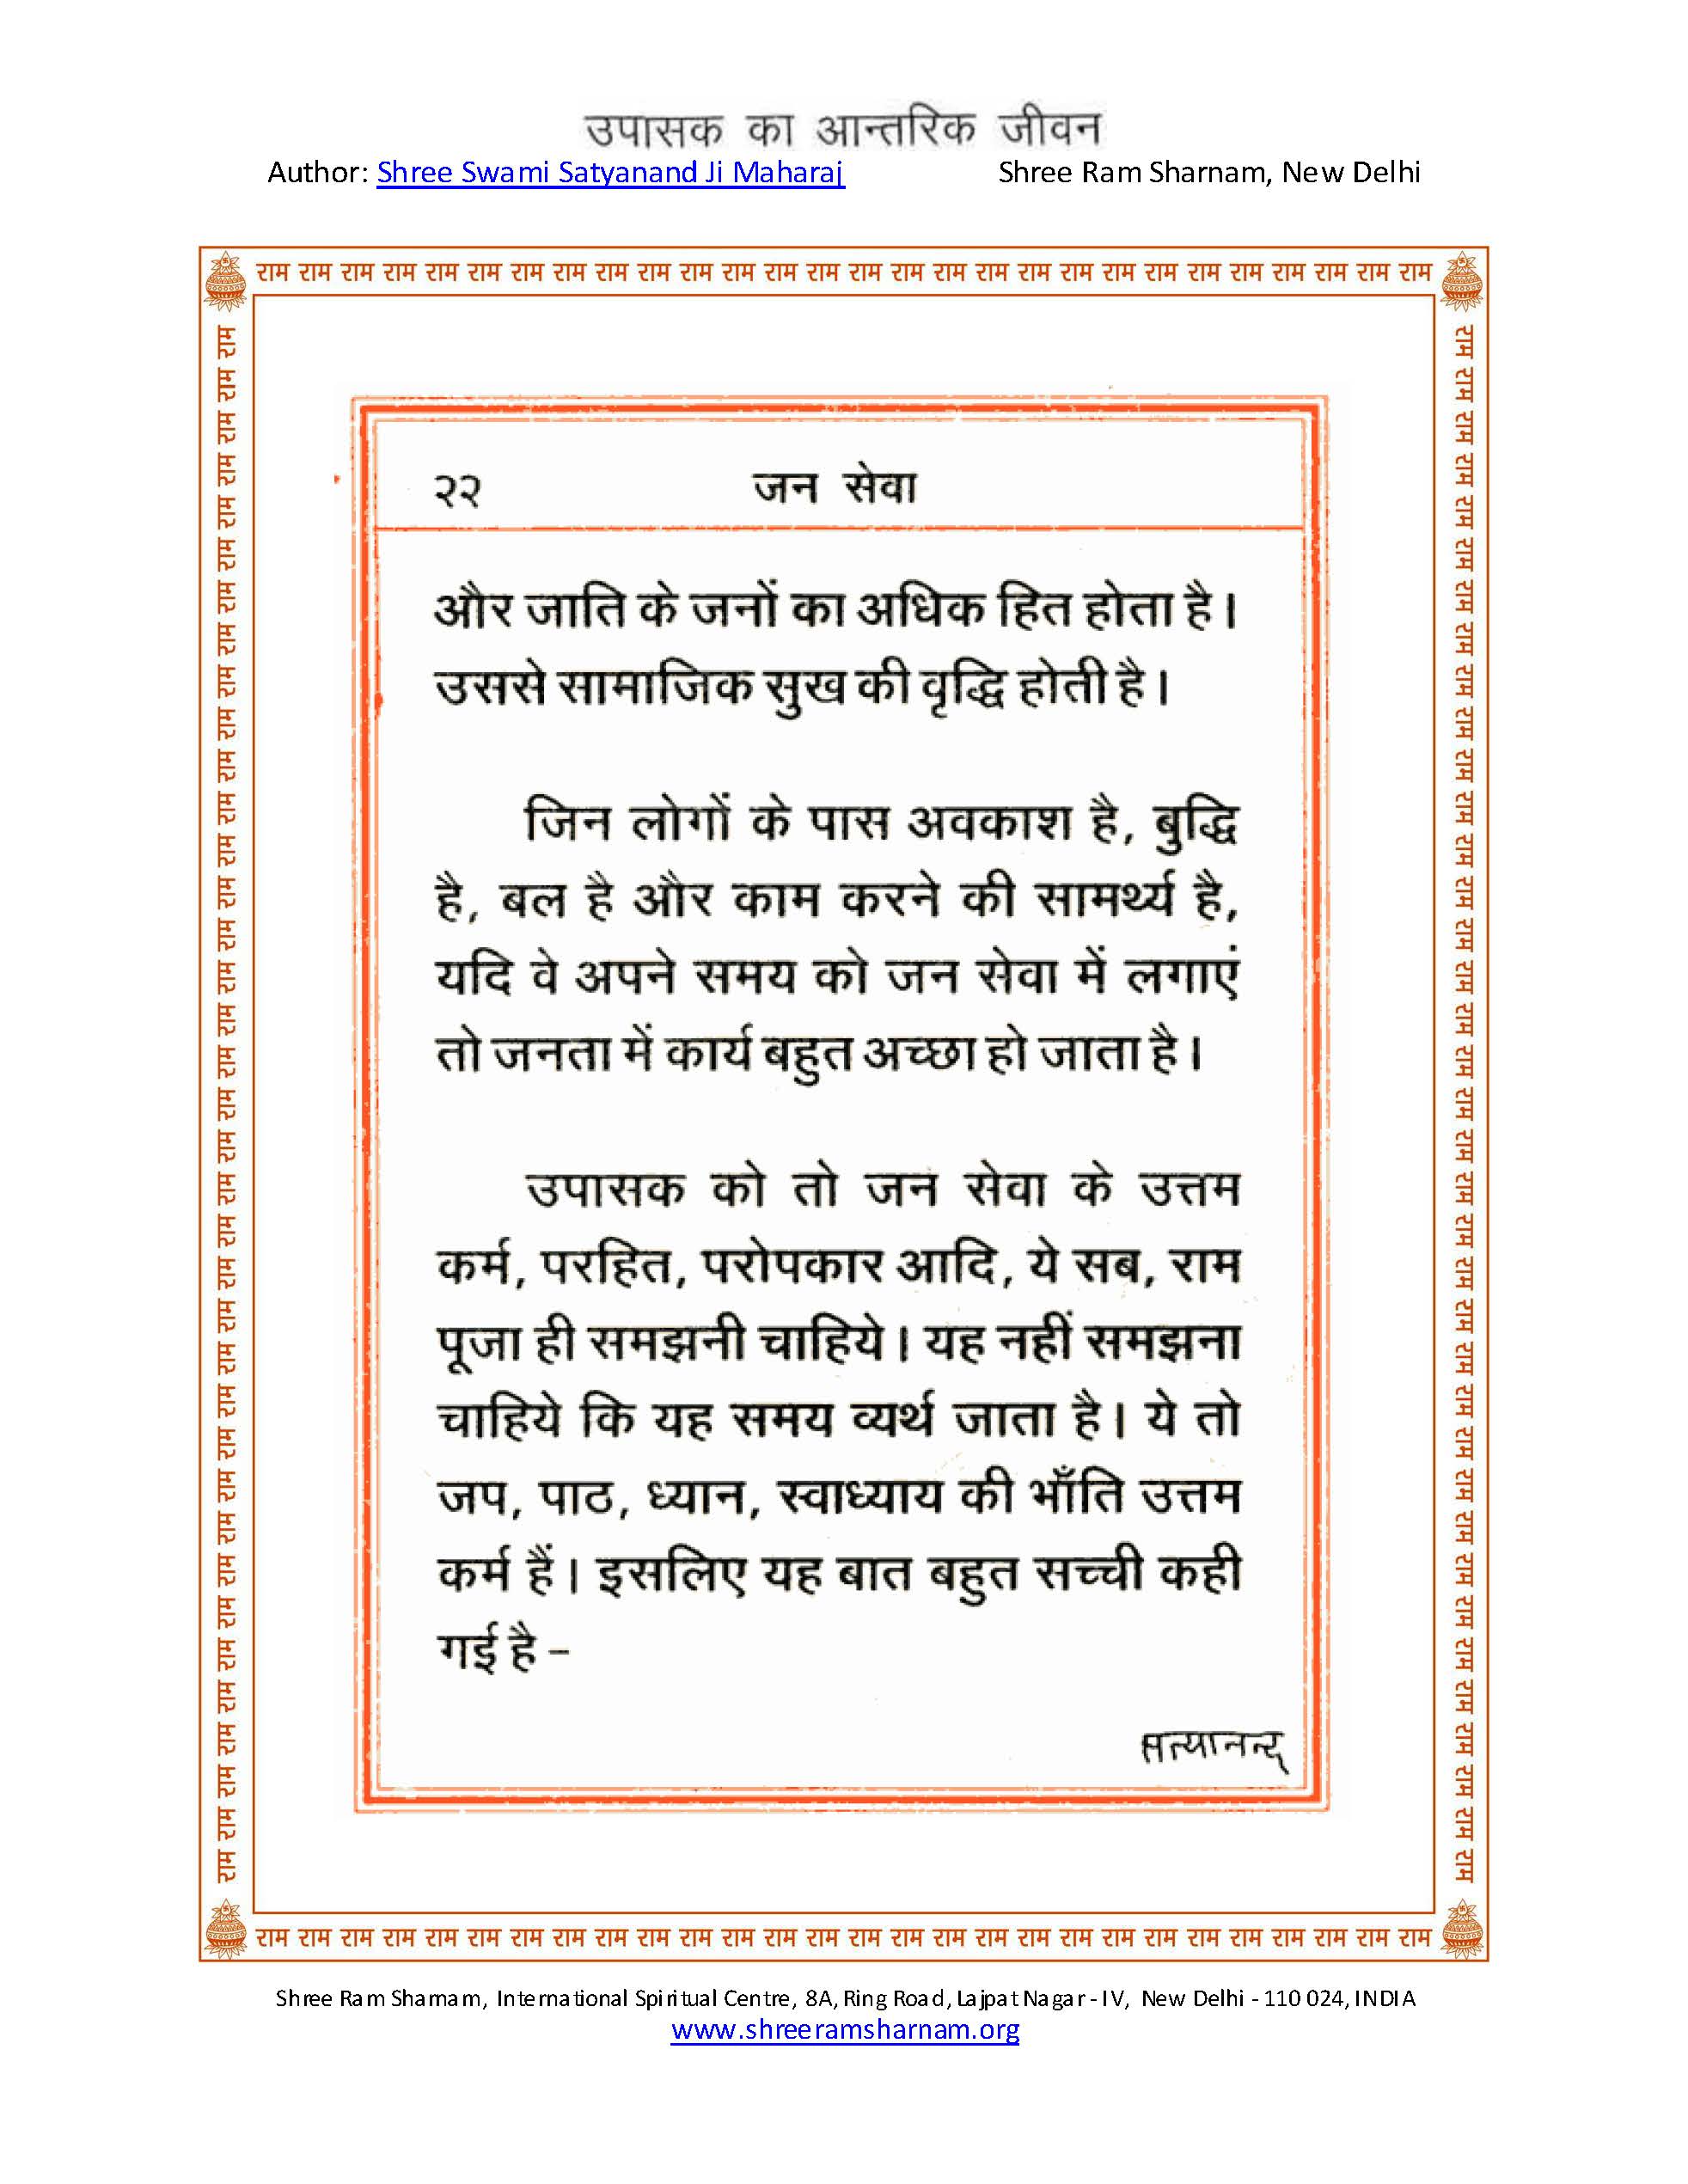 उपासक का आन्तरिक जीवन
Author: Shree Swami Satyanand Ji Maharaj Shree Ram Sharnam, New Delhi
राम राम राम राम राम राम राम राम राम राम राम राम राम राम राम राम राम राम राम राम राम राम राम राम राम राम राम राम
२२ जन सेवा
और जाति के जनों का अधिक हित होता है।
उससे सामाजिक सुख की वृद्धि होती है।
जिन लोगों के पास अवकाश है, बुद्धि
है, बल है और काम करने की सामर्थ्य है,
यदि वे अपने समय को जन सेवा में लगाएं
तो जनता में कार्य बहुत अच्छा हो जाता है।
उपासक को तो जन सेवा के उत्तम
कर्म, परहित, परोपकार आदि, ये सब, राम
पूजा ही समझनी चाहिये। यह नहीं समझना
चाहिये कि यह समय व्यर्थ जाता है। ये तो
जप, पाठ, ध्यान, स्वाध्याय की भाँति उत्तम
कर्म हैं। इसलिए यह बात बहुत सच्ची कही
गई है –
सत्यानन्द
राम राम राम राम राम राम राम राम राम राम राम राम राम राम राम राम राम राम राम राम राम राम राम राम राम राम राम राम
राम राम राम राम राम राम राम राम राम राम राम राम राम राम राम राम राम राम राम राम राम राम राम राम राम राम राम राम राम राम राम राम राम राम राम राम राम
राम राम राम राम राम राम राम राम राम राम राम राम राम राम राम राम राम राम राम राम राम राम राम राम राम राम राम राम राम राम राम राम राम राम राम राम राम
Shree Ram Sharnam, International Spiritual Centre, 8A, Ring Road, Lajpat Nagar - IV, New Delhi - 110 024, INDIA
www.shreeramsharnam.org